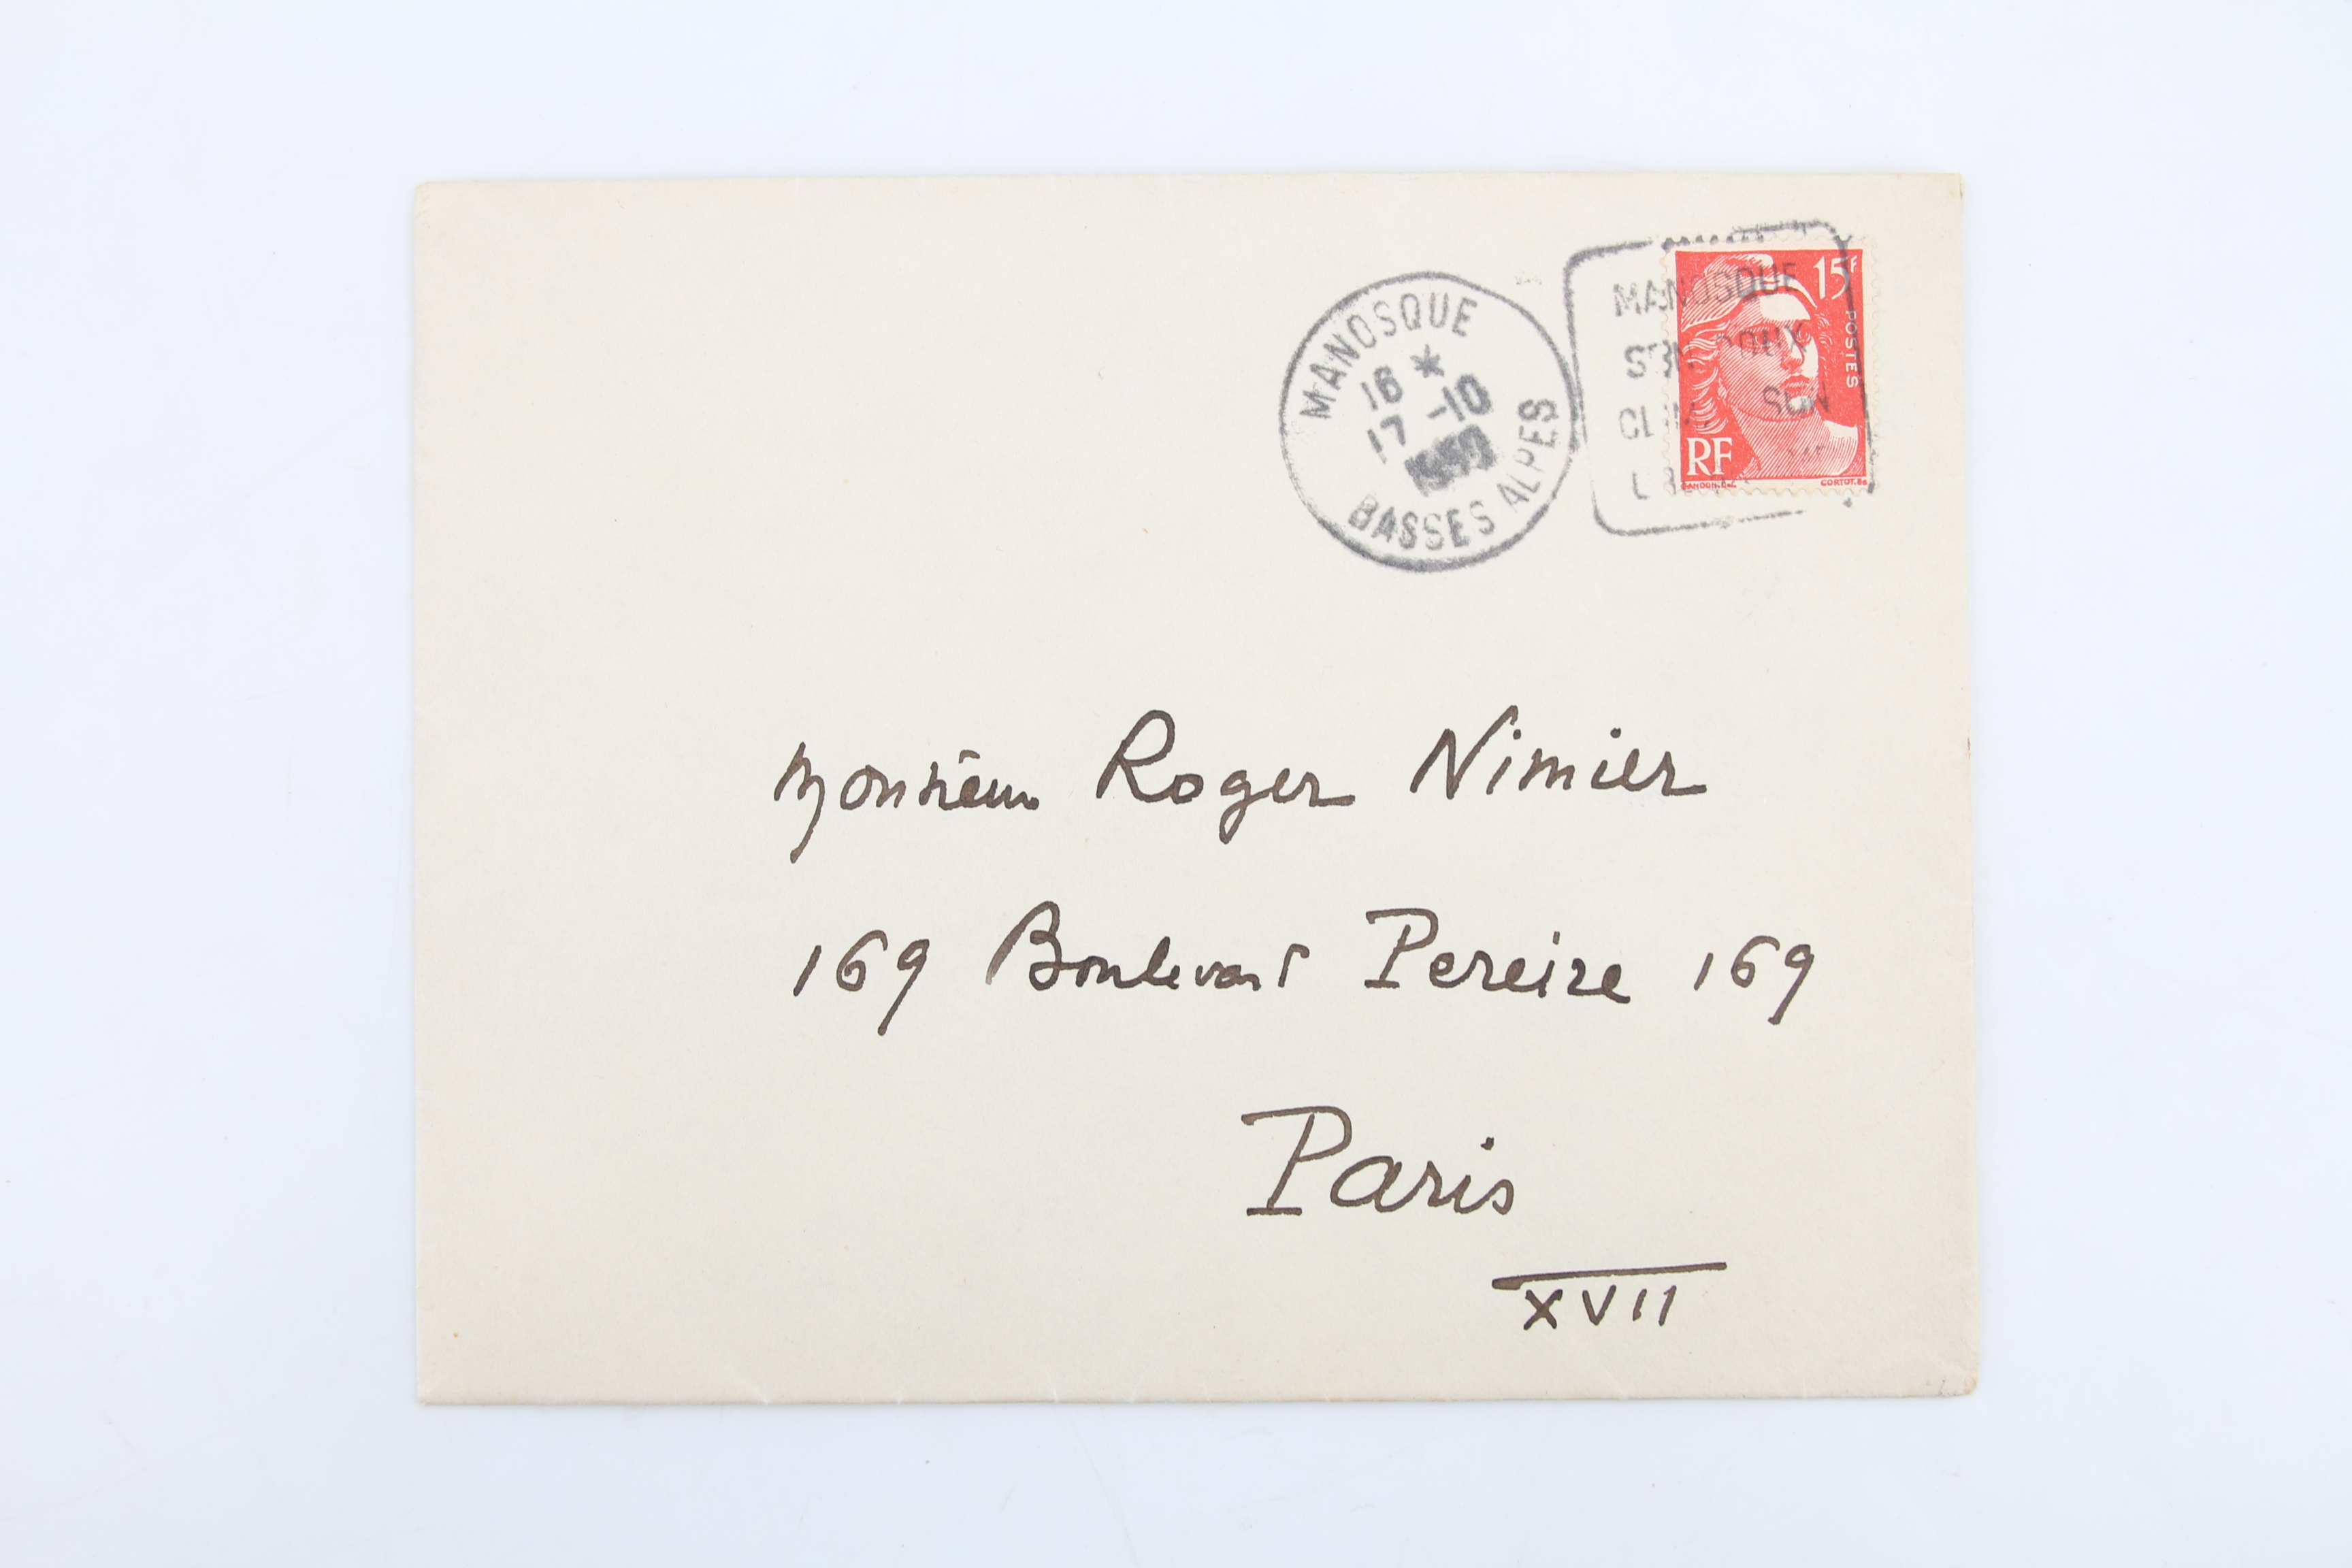 MANOSQUE
16 *
17 -10
BASSES ALPES
MANOSQUE
SON DOUX
SON
15F
POSTES
RF
GANDON
CORTOT
Monsieur Roger Nimier
169 Boulevard Pereire 169
Paris
XVII